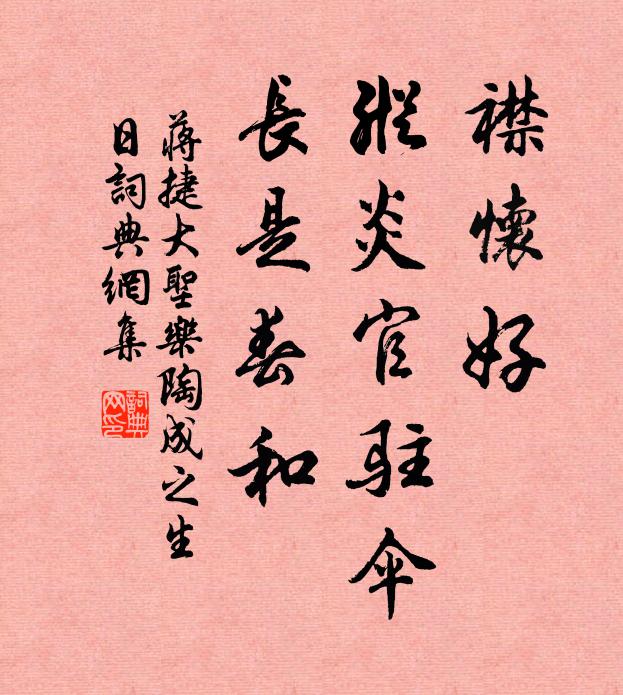 襟懷好
縱炎官駐伞
長是春和
蔣捷大聖樂陶成之生
日詞典網集
詞典
网印